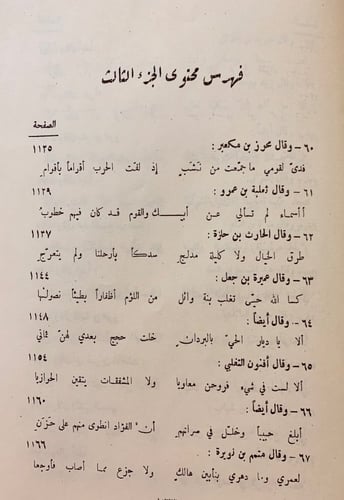 فهرس محتوى الجزء الثالث
الصفحة
٦٠ – وقال محرز بن مكعبر : ١١٢٥
فدىً لقومي ما جمّعت من نَشَبٍ إذ لفّت الحرب أقواماً بأقوامِ
٦١ – وقال ثعلبة بن عمرو : ١١٢٩
أأسماء لم تسألي عن أبيك والقوم قد كان فيهم خطوبُ
٦٢ – وقال الحارث بن حلزة : ١١٣٧
طرق الخيال ولا كليلة مدلج سدكاً بأرحلنا ولم يتعرّجِ
٦٣ – وقال عميرة بن جعل : ١١٤٤
كسا الله حيّي تغلب بنة وائل من اللؤم أظفاراً بطيئاً نصولها
٦٤ – وقال أيضاً : ١١٤٨
ألا يا ديار الحيّ بالبردان خلت حجج بعدي لهنّ ثماني
٦٥ – وقال أفنون التغلبي : ١١٥٤
ألا لست في شيء فروحن معاويا ولا المشفقات يتقين الحوازيا
٦٦ – وقال أيضاً : ١١٦٠
أبلغ حبيباً وخلّل في سراتهم أن الفؤاد انطوى منهم على حَزَنِ
٦٧ – وقال متمم بن نويرة : ١١٦٦
لعمري وما دهري بتأبين هالك ولا جزع مما أصاب فأوجعا